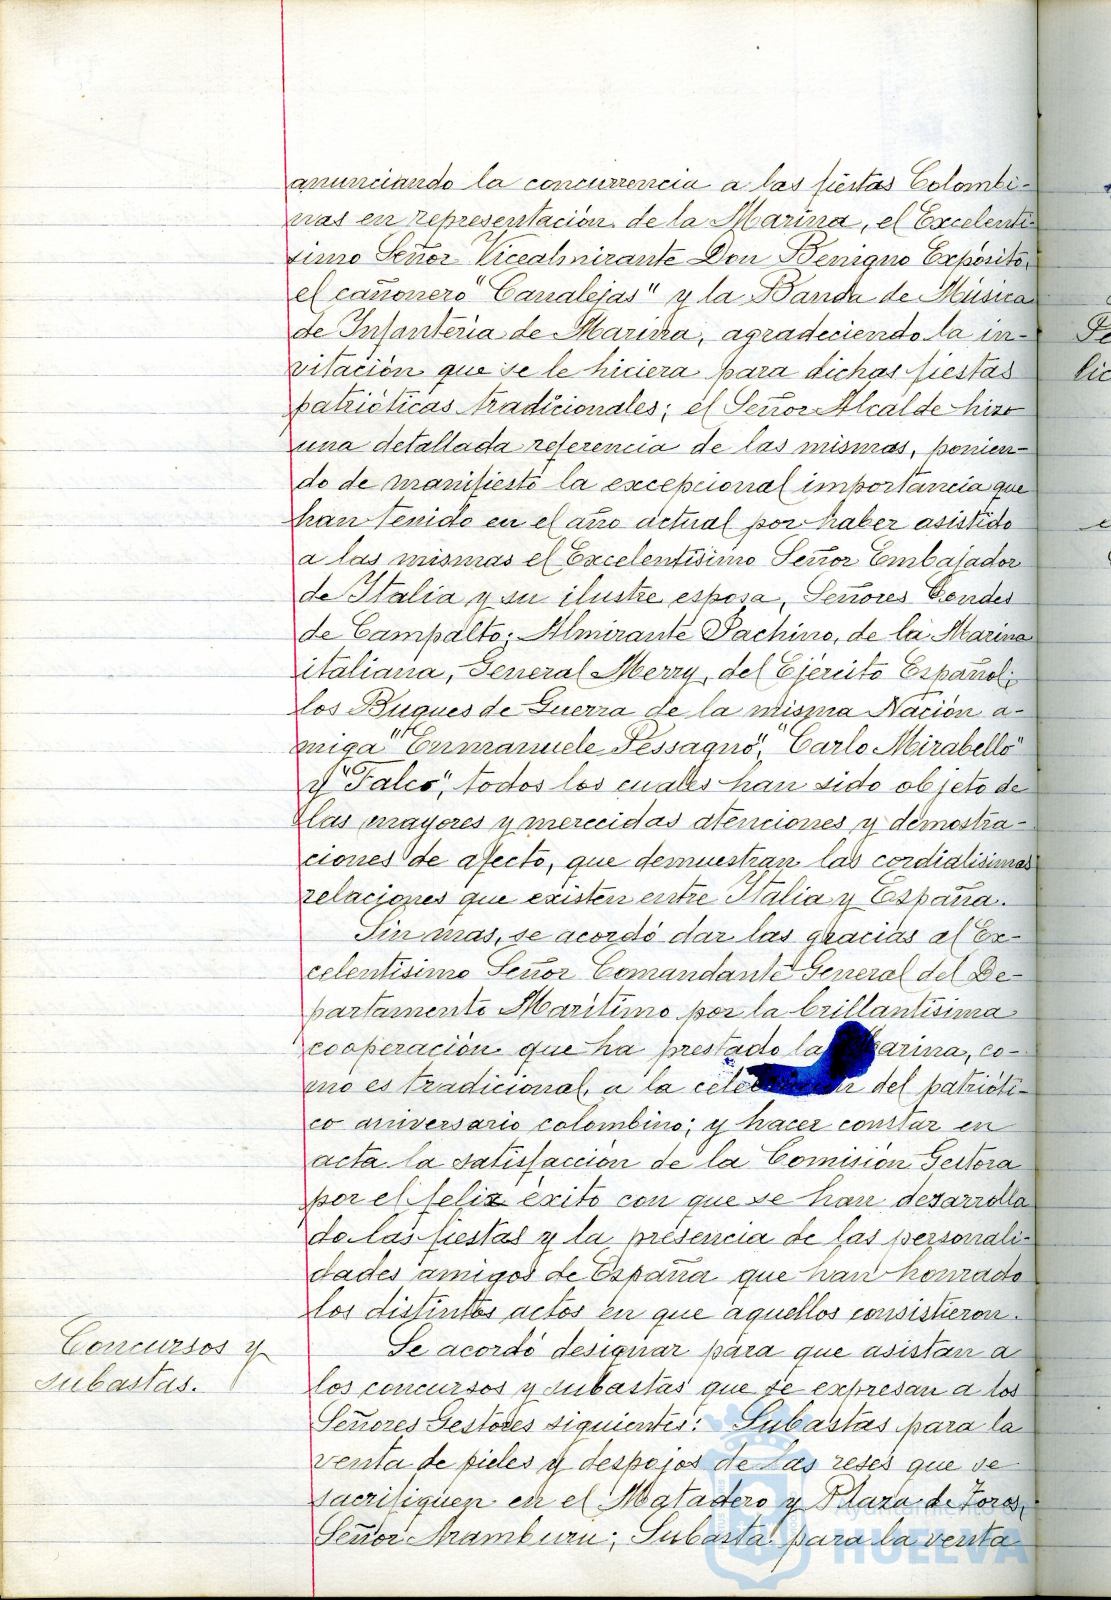 anunciando la concurrencia a las fiestas Colombi-
nas en representación de la Marina, el Excelentí-
simo Señor Vicealmirante Don Benigno Expósito,
el cañonero "Canalejas" y la Banda de Música
de Infantería de Marina, agradeciendo la in-
vitación que se le hiciera para dichas fiestas
patrióticas tradicionales; el Señor Alcalde hizo
una detallada referencia de las mismas, ponien-
do de manifiesto la excepcional importancia que
han tenido en el año actual por haber asistido
a las mismas el Excelentísimo Señor Embajador
de Italia y su ilustre esposa, Señores Condes
de Campalto; Almirante Pachino, de la Marina
italiana, General Merry, del Ejército Español;
los Buques de Guerra de la misma Nación a-
miga "Enmanuele Pessagno", "Carlo Mirabello"
y "Falco", todos los cuales han sido objeto de
las mayores y merecidas atenciones y demostra-
ciones de afecto, que demuestran las cordialísimas
relaciones que existen entre Italia y España.
Sin mas, se acordó dar las gracias al Ex-
celentísimo Señor Comandante General del De-
partamento Marítimo por la brillantísima
cooperación que ha prestado la Marina, co-
mo es tradicional, a la celebración del patrióti-
co aniversario colombino; y hacer constar en
acta la satisfacción de la Comisión Gestora
por el feliz éxito con que se han desarrolla
do las fiestas y la presencia de las personali-
dades amigos de España que han honrado
los distintos actos en que aquellos consistieron.
Concursos y
subastas.
Se acordó designar para que asistan a
los concursos y subastas que se expresan a los
Señores Gestores siguientes: Subastas para la
venta de pieles y despojos de las reses que se
sacrifiquen en el Matadero y Plaza de Toros,
Señor Aramburu; Subasta para la venta
Ayuntamiento de
HUELVA